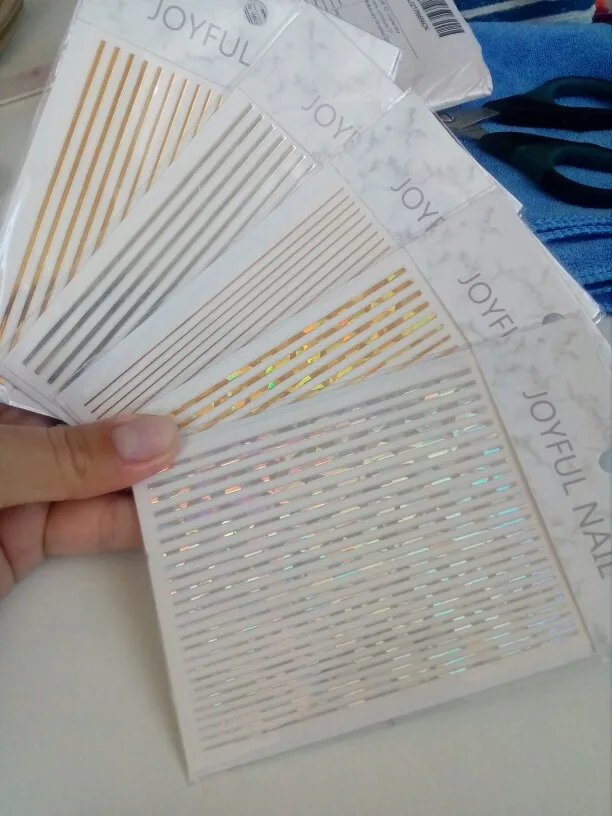 JOYFUL
JOYF
JOYF
JOYFU
JOYFUL NAIL